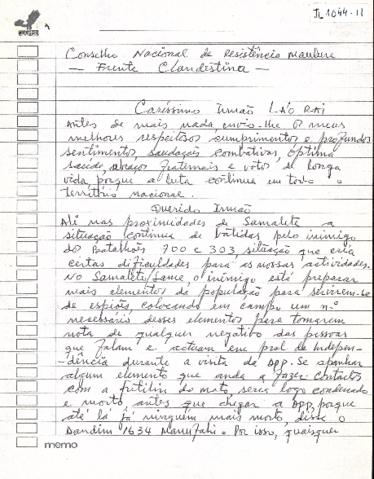 TL 1044-11
Conselho Nacional de Resistência Maubere
— Frente Clandestina —
Caríssimo Irmão L-4/O RAI
Antes de mais nada, envio-lhe os meus
melhores respeitosos cumprimentos e profundos
sentimentos, saudação combativas, óptima
saúde, abraços fraternais e votos de longa
vida porque a luta continua em todo o
território nacional.
Querido Irmão
Até nas proximidades de Samalete a
situação continua de batidas pelo inimigo
do Batalhões 700 e 303, situação que cria
certas dificuldades para as nossas actividades.
No Samalete/Same, o inimigo está preparar
mais elementos de população para servirem-se
de espião, colocando em campo um nº
necessário desses elementos para tomarem
nota de qualquer negativo das pessoas
que falam e actuam em prol de Indepen-
-dência durante a visita da dpp. Se apanhar
algum elemento que anda a fazer contactos
com a fretilin do mato, será logo condenado
e morto, antes que chegar a dpp, porque
até lá já ninguém mais morto, disse o
Dandim 1634 Manufahi. Por isso, quaisquer
memo